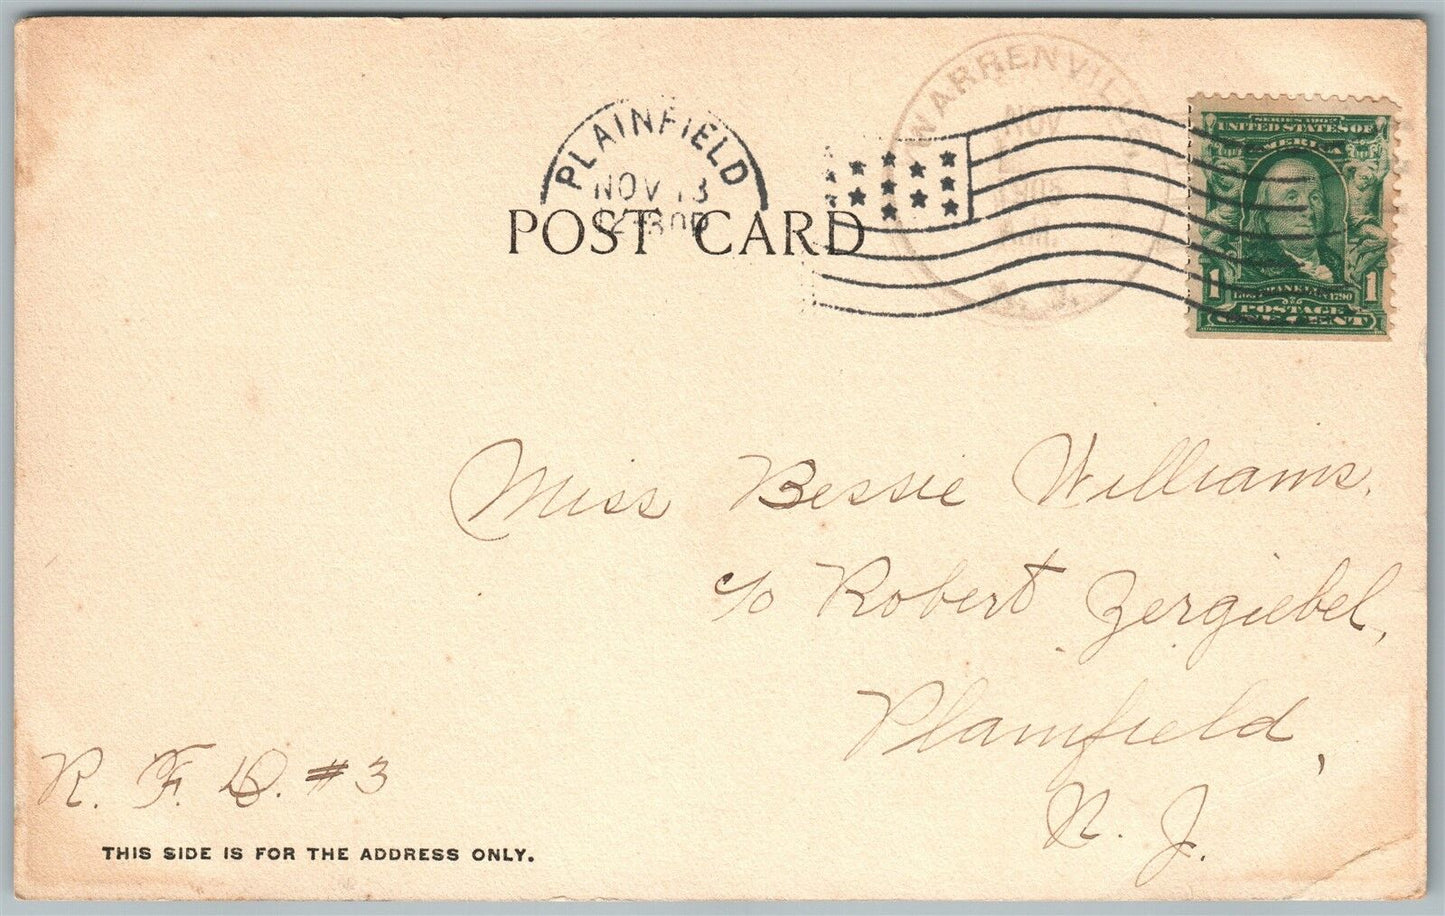 WARRENVILLE,
NOV
N. J.
PLAINFIELD
NOV 13
POST CARD
SERIES 1902
UNITED STATES OF
AMERICA
1 FRANKLIN 1790 1
POSTAGE
ONE CENT
Miss Bessie Williams,
c/o Robert Zergiebel,
Plainfield,
N. J.
R. F. D. #3
THIS SIDE IS FOR THE ADDRESS ONLY.